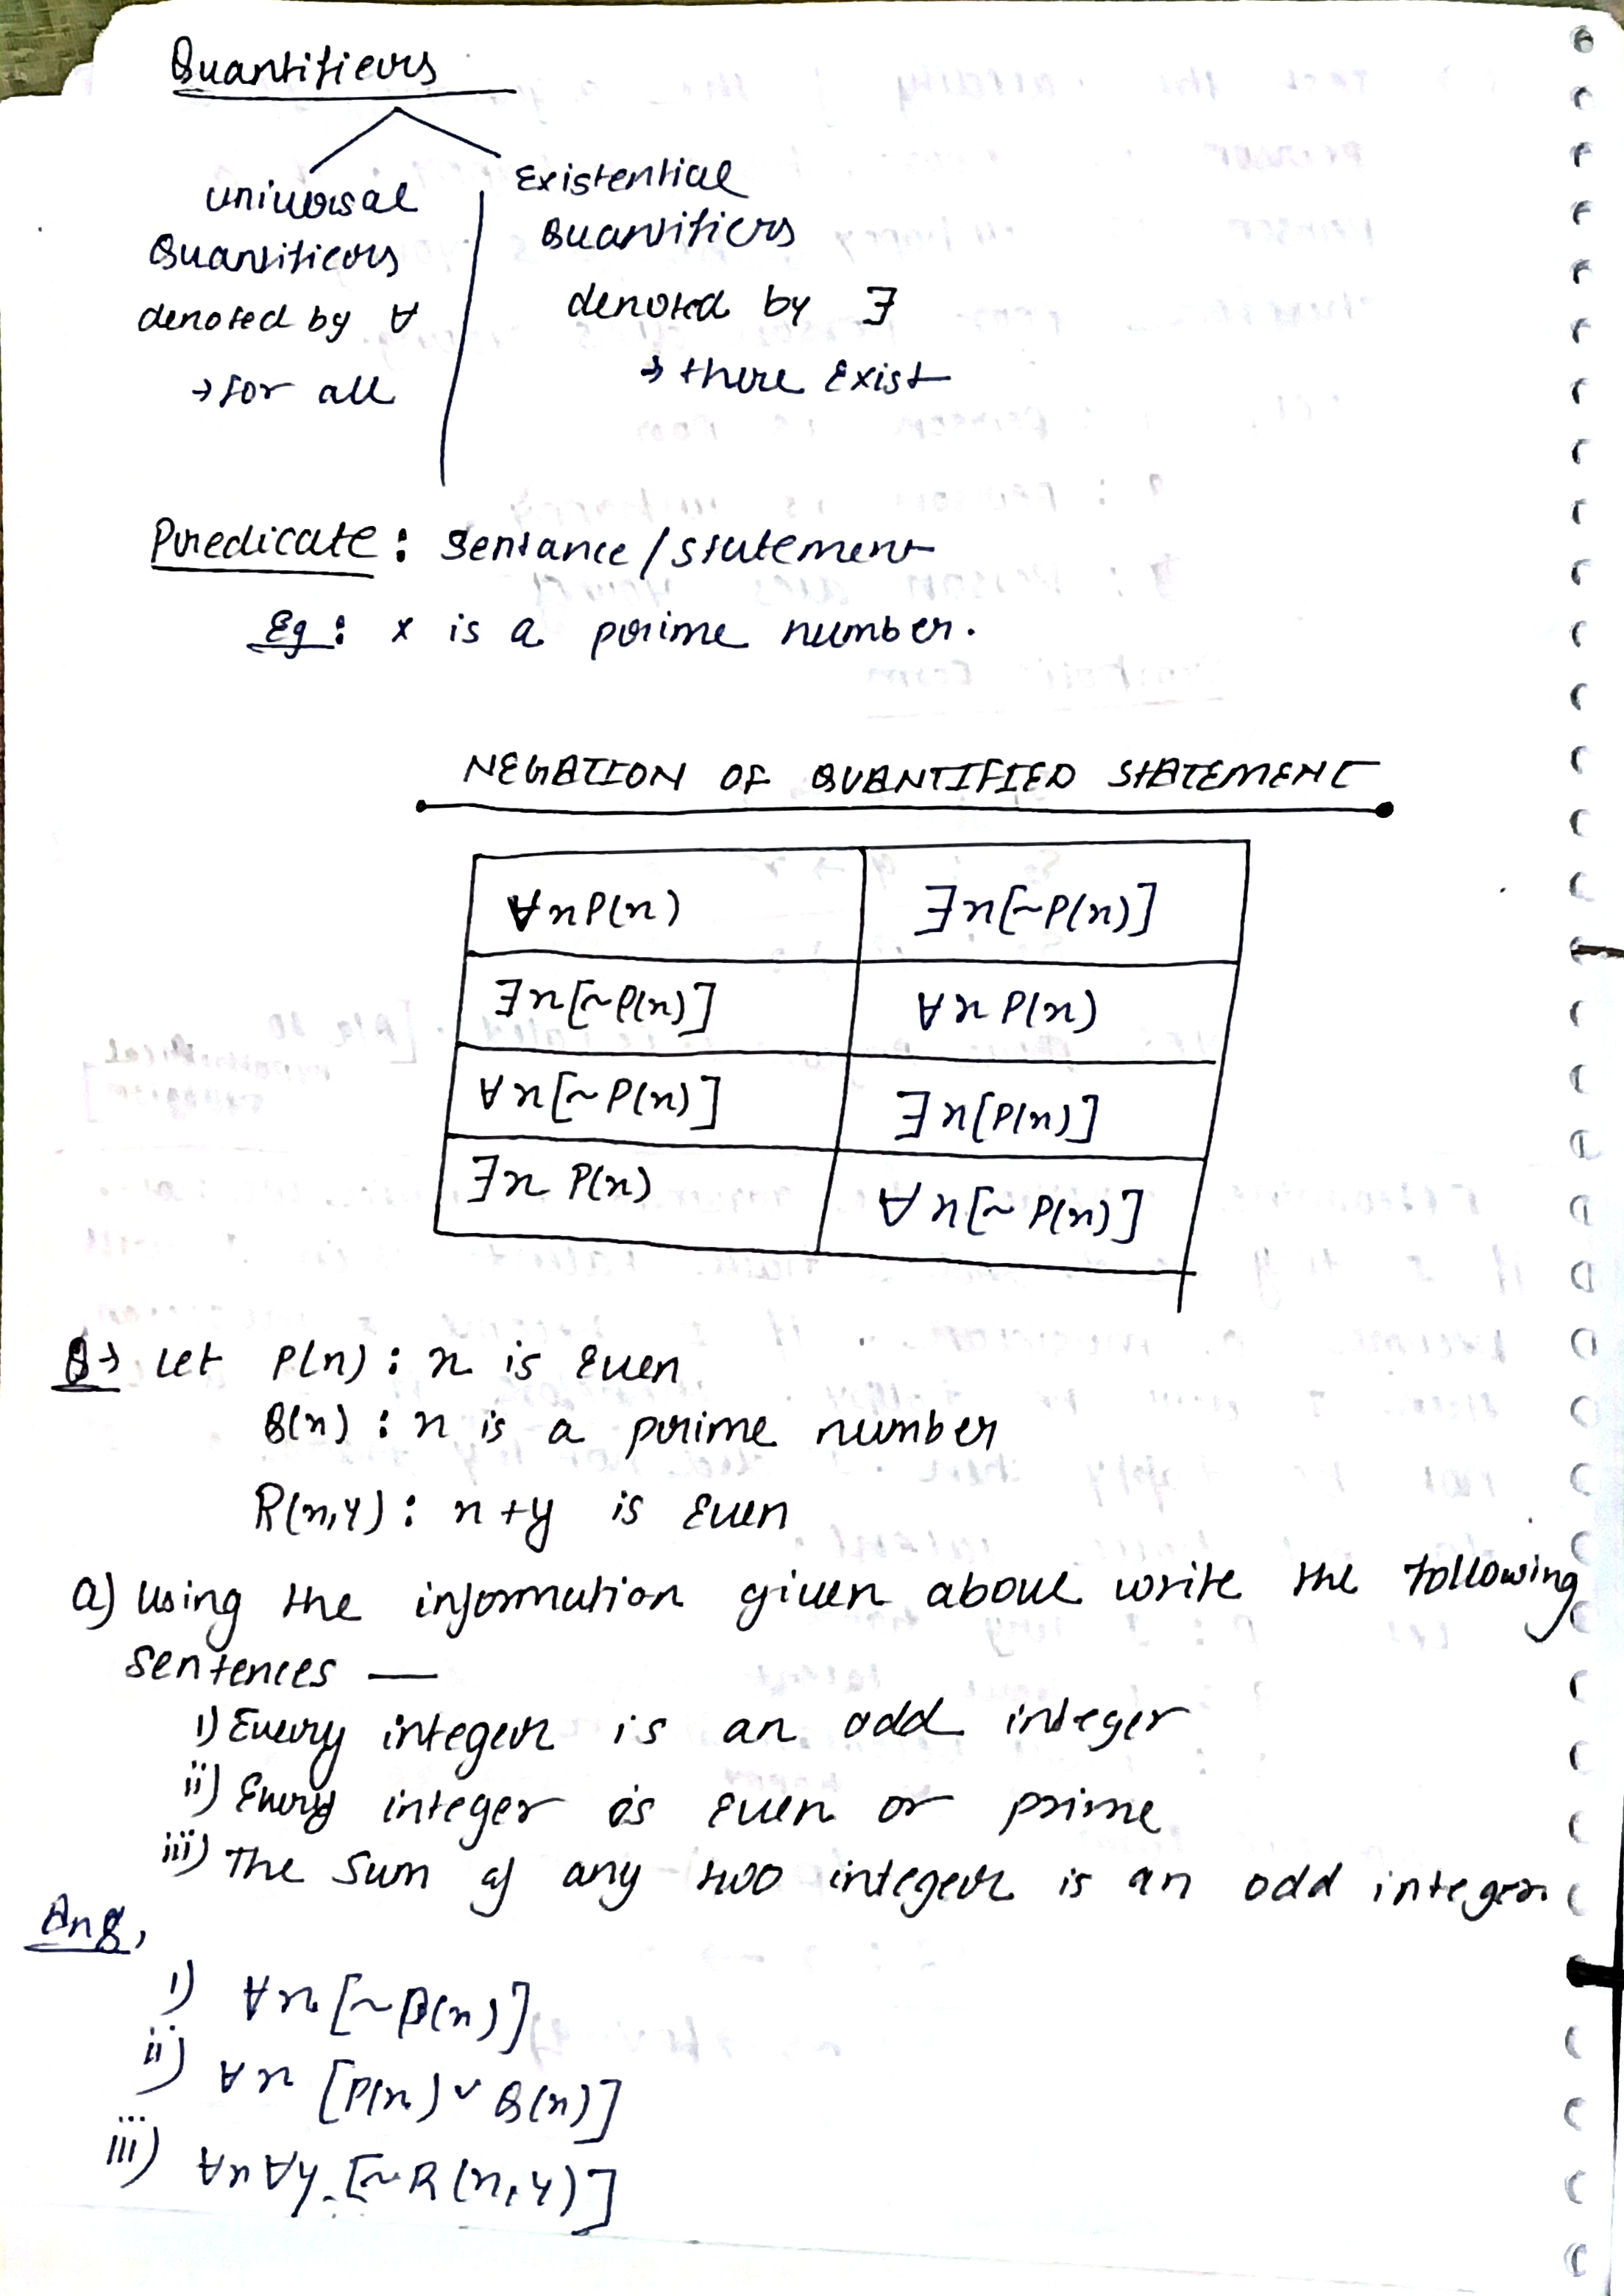 Quantifiers
Universal
Quantifiers
denoted by ∀
→ for all
Existential
Quantifiers
denoted by ∃
→ there Exist
Predicate: Sentance/statement
Eg: x is a prime number.
NEGATION OF QUANTIFIED STATEMENT
∀x P(x) ∃x[~P(x)]
∃x[~P(x)] ∀x P(x)
∀x[~P(x)] ∃x[P(x)]
∃x P(x) ∀x[~P(x)]
Q→ Let P(x): x is Even
Q(x): x is a prime number
R(x,y): x+y is Even
a) Using the information given above write the following
sentences —
i) Every integer is an odd integer
ii) Every integer is Even or prime
iii) The Sum of any two integer is an odd integer.
Ans,
i) ∀x [~P(x)]
ii) ∀x [P(x) ∨ Q(x)]
iii) ∀x ∀y [~R(x,y)]